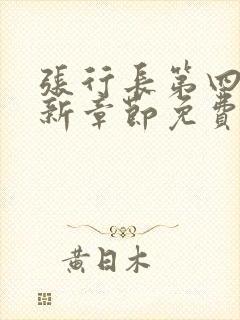 張行長第四
新章節免費
黃日木